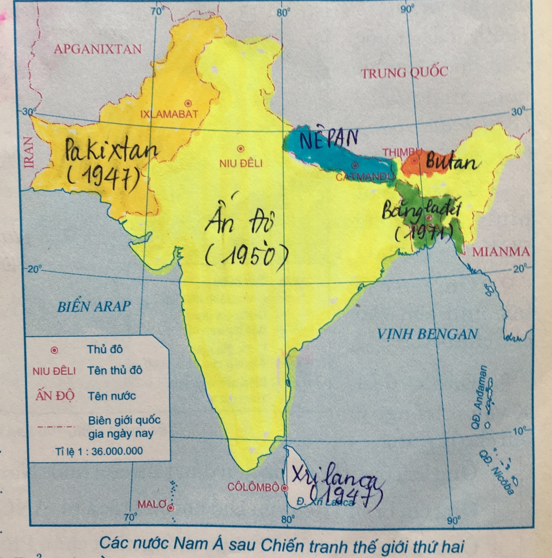 70°
80°
90°
APGANIXTAN
TRUNG QUỐC
30°
30°
IXLAMABAT
IRAN
Pakixtan
(1947)
NIU ĐÊLI
NÊPAN
CATMANĐU
THIMPU
Butan
Bănglađét
(1971)
Ấn Độ
(1950)
MIANMA
20°
20°
BIỂN ARAP
VỊNH BENGAN
Thủ đô
NIU ĐÊLI Tên thủ đô
ẤN ĐỘ Tên nước
Biên giới quốc
gia ngày nay
Tỉ lệ 1 : 36.000.000
QĐ. Anđaman
10°
QĐ. Nicôba
Xrilanca
(1947)
CÔLÔMBÔ
Đ. Xri Lanca
MALƠ
70°
80°
90°
Các nước Nam Á sau Chiến tranh thế giới thứ hai